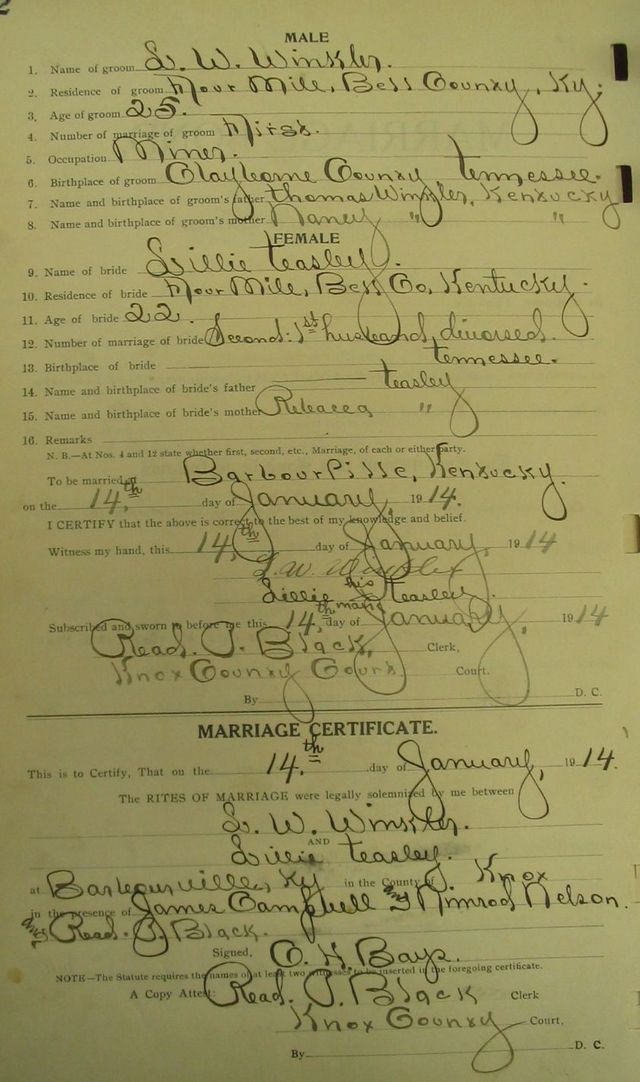 2
MALE
1. Name of groom L. W. Winkler.
2. Residence of groom Four Mile, Bell County, Ky.
3. Age of groom 25.
4. Number of marriage of groom First.
5. Occupation Miner.
6. Birthplace of groom Clayborne County, Tennessee.
7. Name and birthplace of groom's father Thomas Winkler, Kentucky
8. Name and birthplace of groom's mother Nancy " "
FEMALE
9. Name of bride Lillie Teasley.
10. Residence of bride Four Mile, Bell Co, Kentucky.
11. Age of bride 22.
12. Number of marriage of bride Second: 1st husband, divorsed.
13. Birthplace of bride Tennessee.
14. Name and birthplace of bride's father Teasley
15. Name and birthplace of bride's mother Rebecca "
16. Remarks
N. B.—At Nos. 4 and 12 state whether first, second, etc., Marriage, of each or either party.
To be married at Barbourville, Kentucky.
on the 14,th day of January, 1914.
I CERTIFY that the above is correct to the best of my knowledge and belief.
Witness my hand, this 14,th day of January, 1914
L. W. Winkler
Lillie his x mark Teasley.
Subscribed and sworn to before me this 14,th day of January, 1914
Read. P. Black, Clerk,
Knox County Court Court.
By D. C.
MARRIAGE CERTIFICATE.
This is to Certify, That on the 14,th day of January, 1914.
The RITES OF MARRIAGE were legally solemnized by me between
L. W. Winkler.
AND
Lillie Teasley.
at Barbourville, Ky in the County of Knox
in the presence of James Campbell and Nimrod Nelson.
and Read. P. Black.
Signed,
NOTE—The Statute requires the names of at least two witnesses to be inserted in the foregoing certificate.
A Copy Attest: Read. P. Black Clerk
Knox County Court,
By D. C.